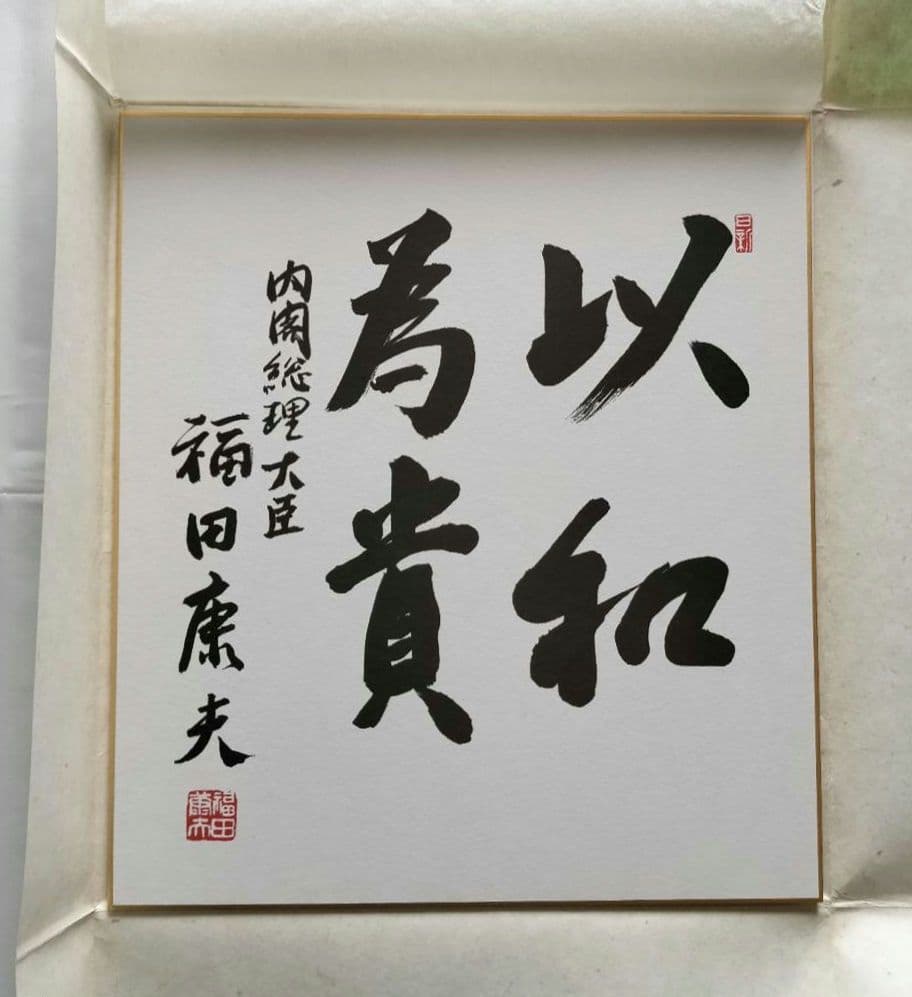 日新
以和
為貴
内閣総理大臣
福田康夫
福田
康夫